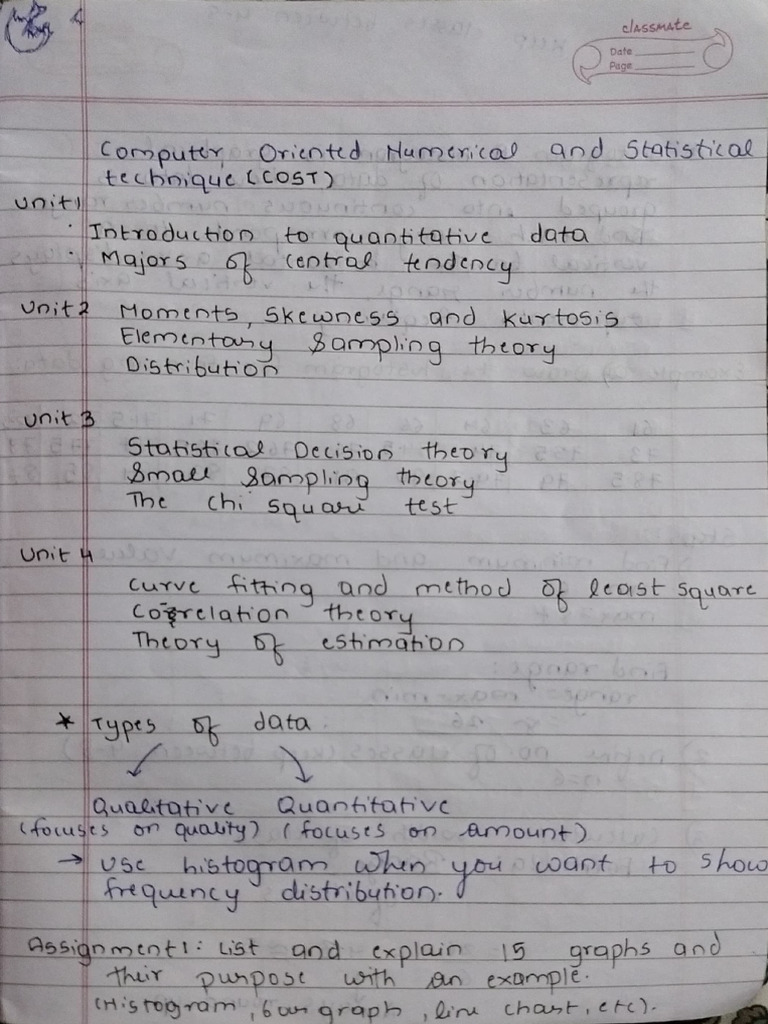 classmate
Date
Page
Computer Oriented Numerical and Statistical
technique (COST)
Unit 1
· Introduction to quantitative data
· Majors of central tendency
Unit 2 Moments, Skewness and Kurtosis
Elementary Sampling theory
Distribution
Unit 3
Statistical Decision theory
Small Sampling theory
The chi square test
Unit 4
Curve fitting and method of least square
Correlation theory
Theory of estimation
* Types of data
Qualitative Quantitative
(focuses on quality) (focuses on amount)
→ Use histogram when you want to show
frequency distribution.
Assignment 1: List and explain 15 graphs and
their purpose with an example.
(Histogram, bar graph, line chart, etc).